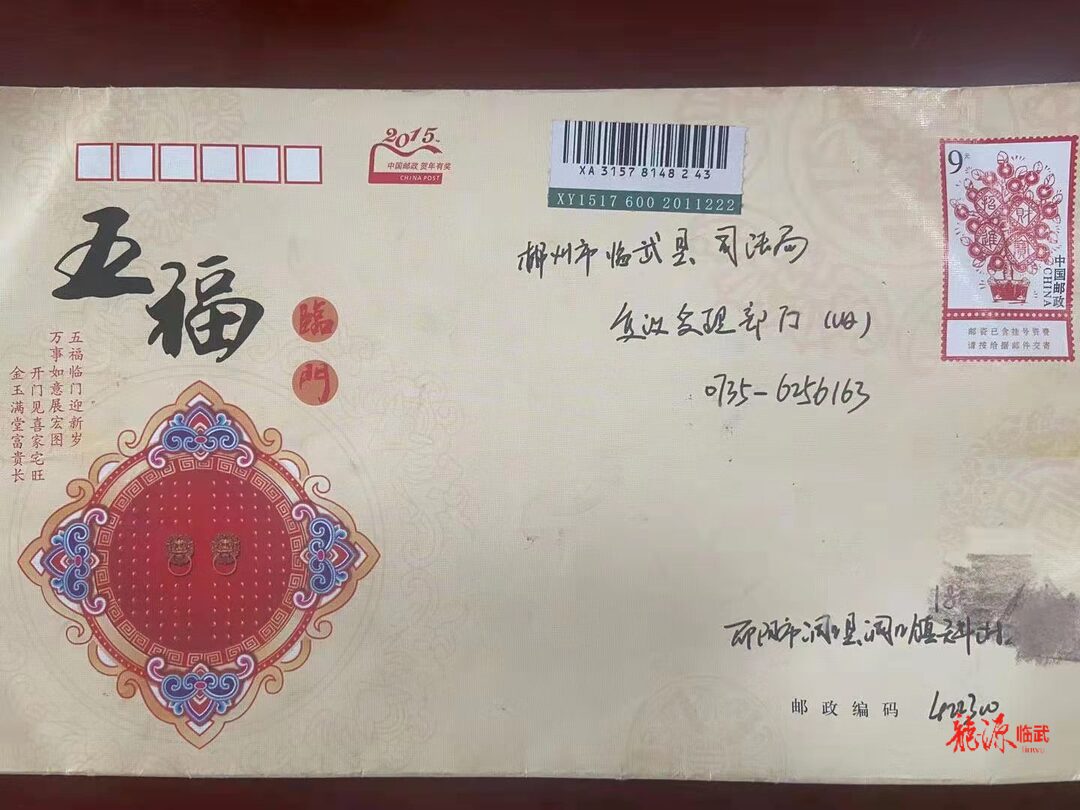 2015
中国邮政 贺年有奖
CHINA POST
五福
臨門
五福临门迎新岁
万事如意展宏图
开门见喜家宅旺
金玉满堂富贵长
XA 31578148243
XY1517 600 2011222
9元
招财进寶
中国邮政
CHINA
邮资已含挂号资费
请按给据邮件交寄
郴州市临武县司法局
复议受理部门（收）
0735-6256163
邵阳市洞口县洞口镇
邮政编码 422300
龍源临武
linwu